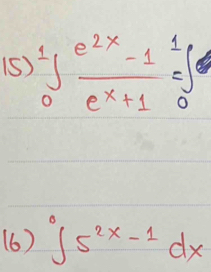 15) ¹∫₀ (e^{2x} - 1)/(e^x + 1) = ¹∫₀
16) ⁰∫ 5^{2x - 1} dx